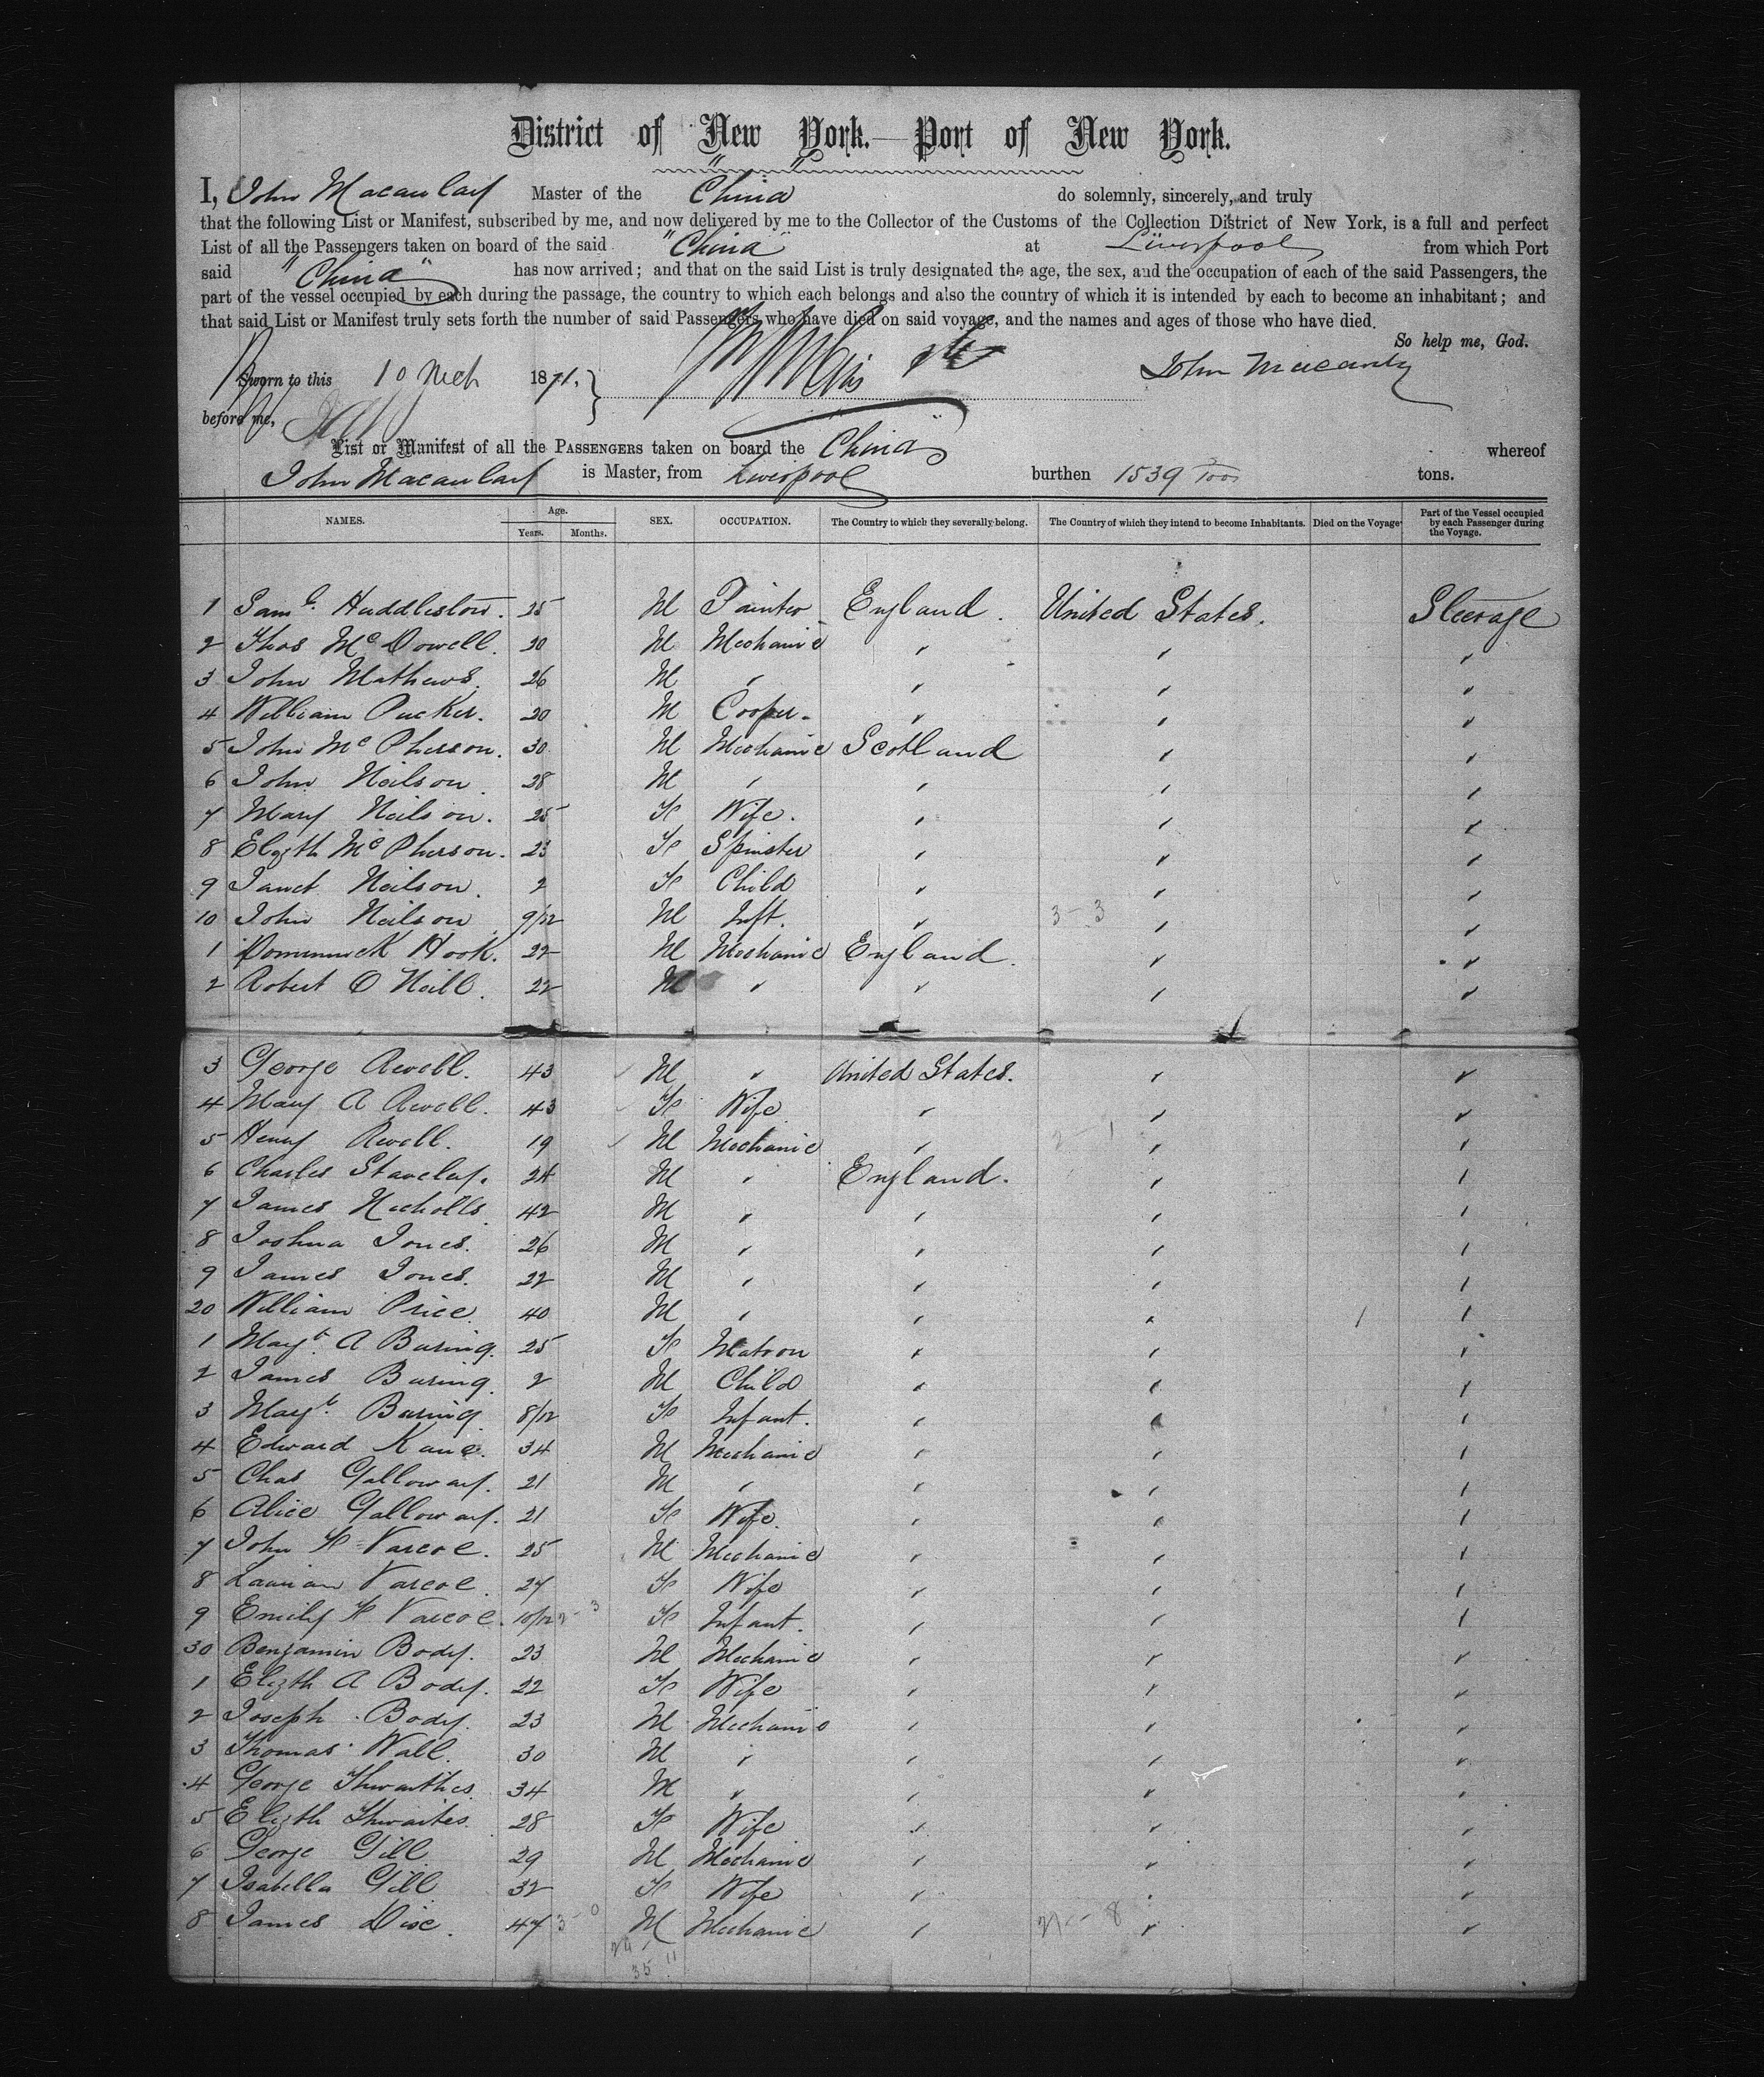 District of New York.—Port of New York.
I, John Macaulay Master of the "China" do solemnly, sincerely, and truly
that the following List or Manifest, subscribed by me, and now delivered by me to the Collector of the Customs of the Collection District of New York, is a full and perfect
List of all the Passengers taken on board of the said "China" at Liverpool from which Port
said "China" has now arrived; and that on the said List is truly designated the age, the sex, and the occupation of each of the said Passengers, the
part of the vessel occupied by each during the passage, the country to which each belongs and also the country of which it is intended by each to become an inhabitant; and
that said List or Manifest truly sets forth the number of said Passengers who have died on said voyage, and the names and ages of those who have died.
So help me, God.
Sworn to this 10 Mch 1871, John Macaulay
before me,
List or Manifest of all the PASSENGERS taken on board the "China" whereof
John Macaulay is Master, from Liverpool burthen 1539 tons.
NAMES. Age. Years. Months. SEX. OCCUPATION. The Country to which they severally belong. The Country of which they intend to become Inhabitants. Died on the Voyage Part of the Vessel occupied by each Passenger during the Voyage.
1 Saml. Huddleston. 25 M Painter England. United States. Steerage
2 Thos McDowell. 30 M Mechanic " " "
3 John Mathews. 26 M " " " "
4 William Pucker. 20 M Cooper. " " "
5 John McPherson. 30 M Mechanic Scotland " "
6 John Neilson. 28 M " " " "
7 Mary Neilson. 25 F Wife. " " "
8 Elizth McPherson. 23 F Spinster " " "
9 Janet Neilson. 2 F Child " " "
10 John Neilson 9/12 M Inft. " 3-3 " "
1 Domminick Hook. 22 M Mechanic England. " "
2 Robert O Neill. 22 M " " " "
3 George Rewell. 43 M " United States. " "
4 Mary A Rewell. 43 F Wife " " "
5 Henry Rewell. 19 M Mechanic " " "
6 Charles Staveley. 24 M " England. " "
7 James Nicholls 42 M " " " "
8 Joshua Jones. 26 M " " " "
9 James Jones. 22 M " " " "
20 William Price 40 M " " " "
1 Margt. A Buring. 25 F Matron " " "
2 James Buring. 2 M Child " " "
3 Margt. Buring 8/12 F Infant. " " "
4 Edward Kane. 34 M Mechanic " " "
5 Chas Galloway. 21 M " " " "
6 Alice Galloway. 21 F Wife. " " "
7 John H Varcoe. 25 M Mechanic " " "
8 Varcoe. 27 F Wife " " "
9 Emily H Varcoe. 10/12 F Infant. " " "
30 Benjamin Body. 23 M Mechanic " " "
1 Elizth A Body. 22 F Wife " " "
2 Joseph Body. 23 M Mechanic " " "
3 Thomas Wall. 30 M " " " "
4 George Thwaithes. 34 M " " " "
5 Elizth Thwaites 28 F Wife " " "
6 George Gill 29 M Mechanic " " "
7 Isabella Gill 32 F Wife " " "
8 James Dixe. 47 3-0 M Mechanic " 27-8 " "
24
35 11